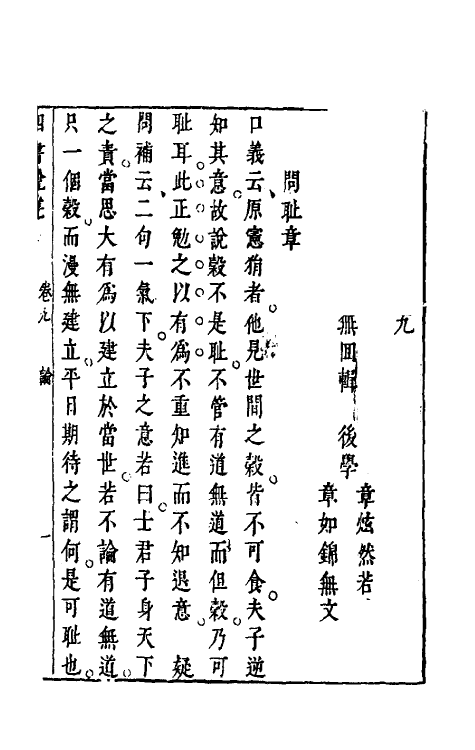 九
無回輯　後學
章炫然若
章如錦無文
問耻章
口義云原憲狷者他見世間之穀皆不可食夫子逆
知其意故說穀不是耻不管有道無道而但穀乃可
耻耳此正勉之以有為不重知進而不知退意　疑
問補云二句一氣下夫子之意若曰士君子身天下
之責當思大有為以建立於當世若不論有道無道
只一個穀而漫無建立平日期待之謂何是可耻也
四書
卷九　論　一